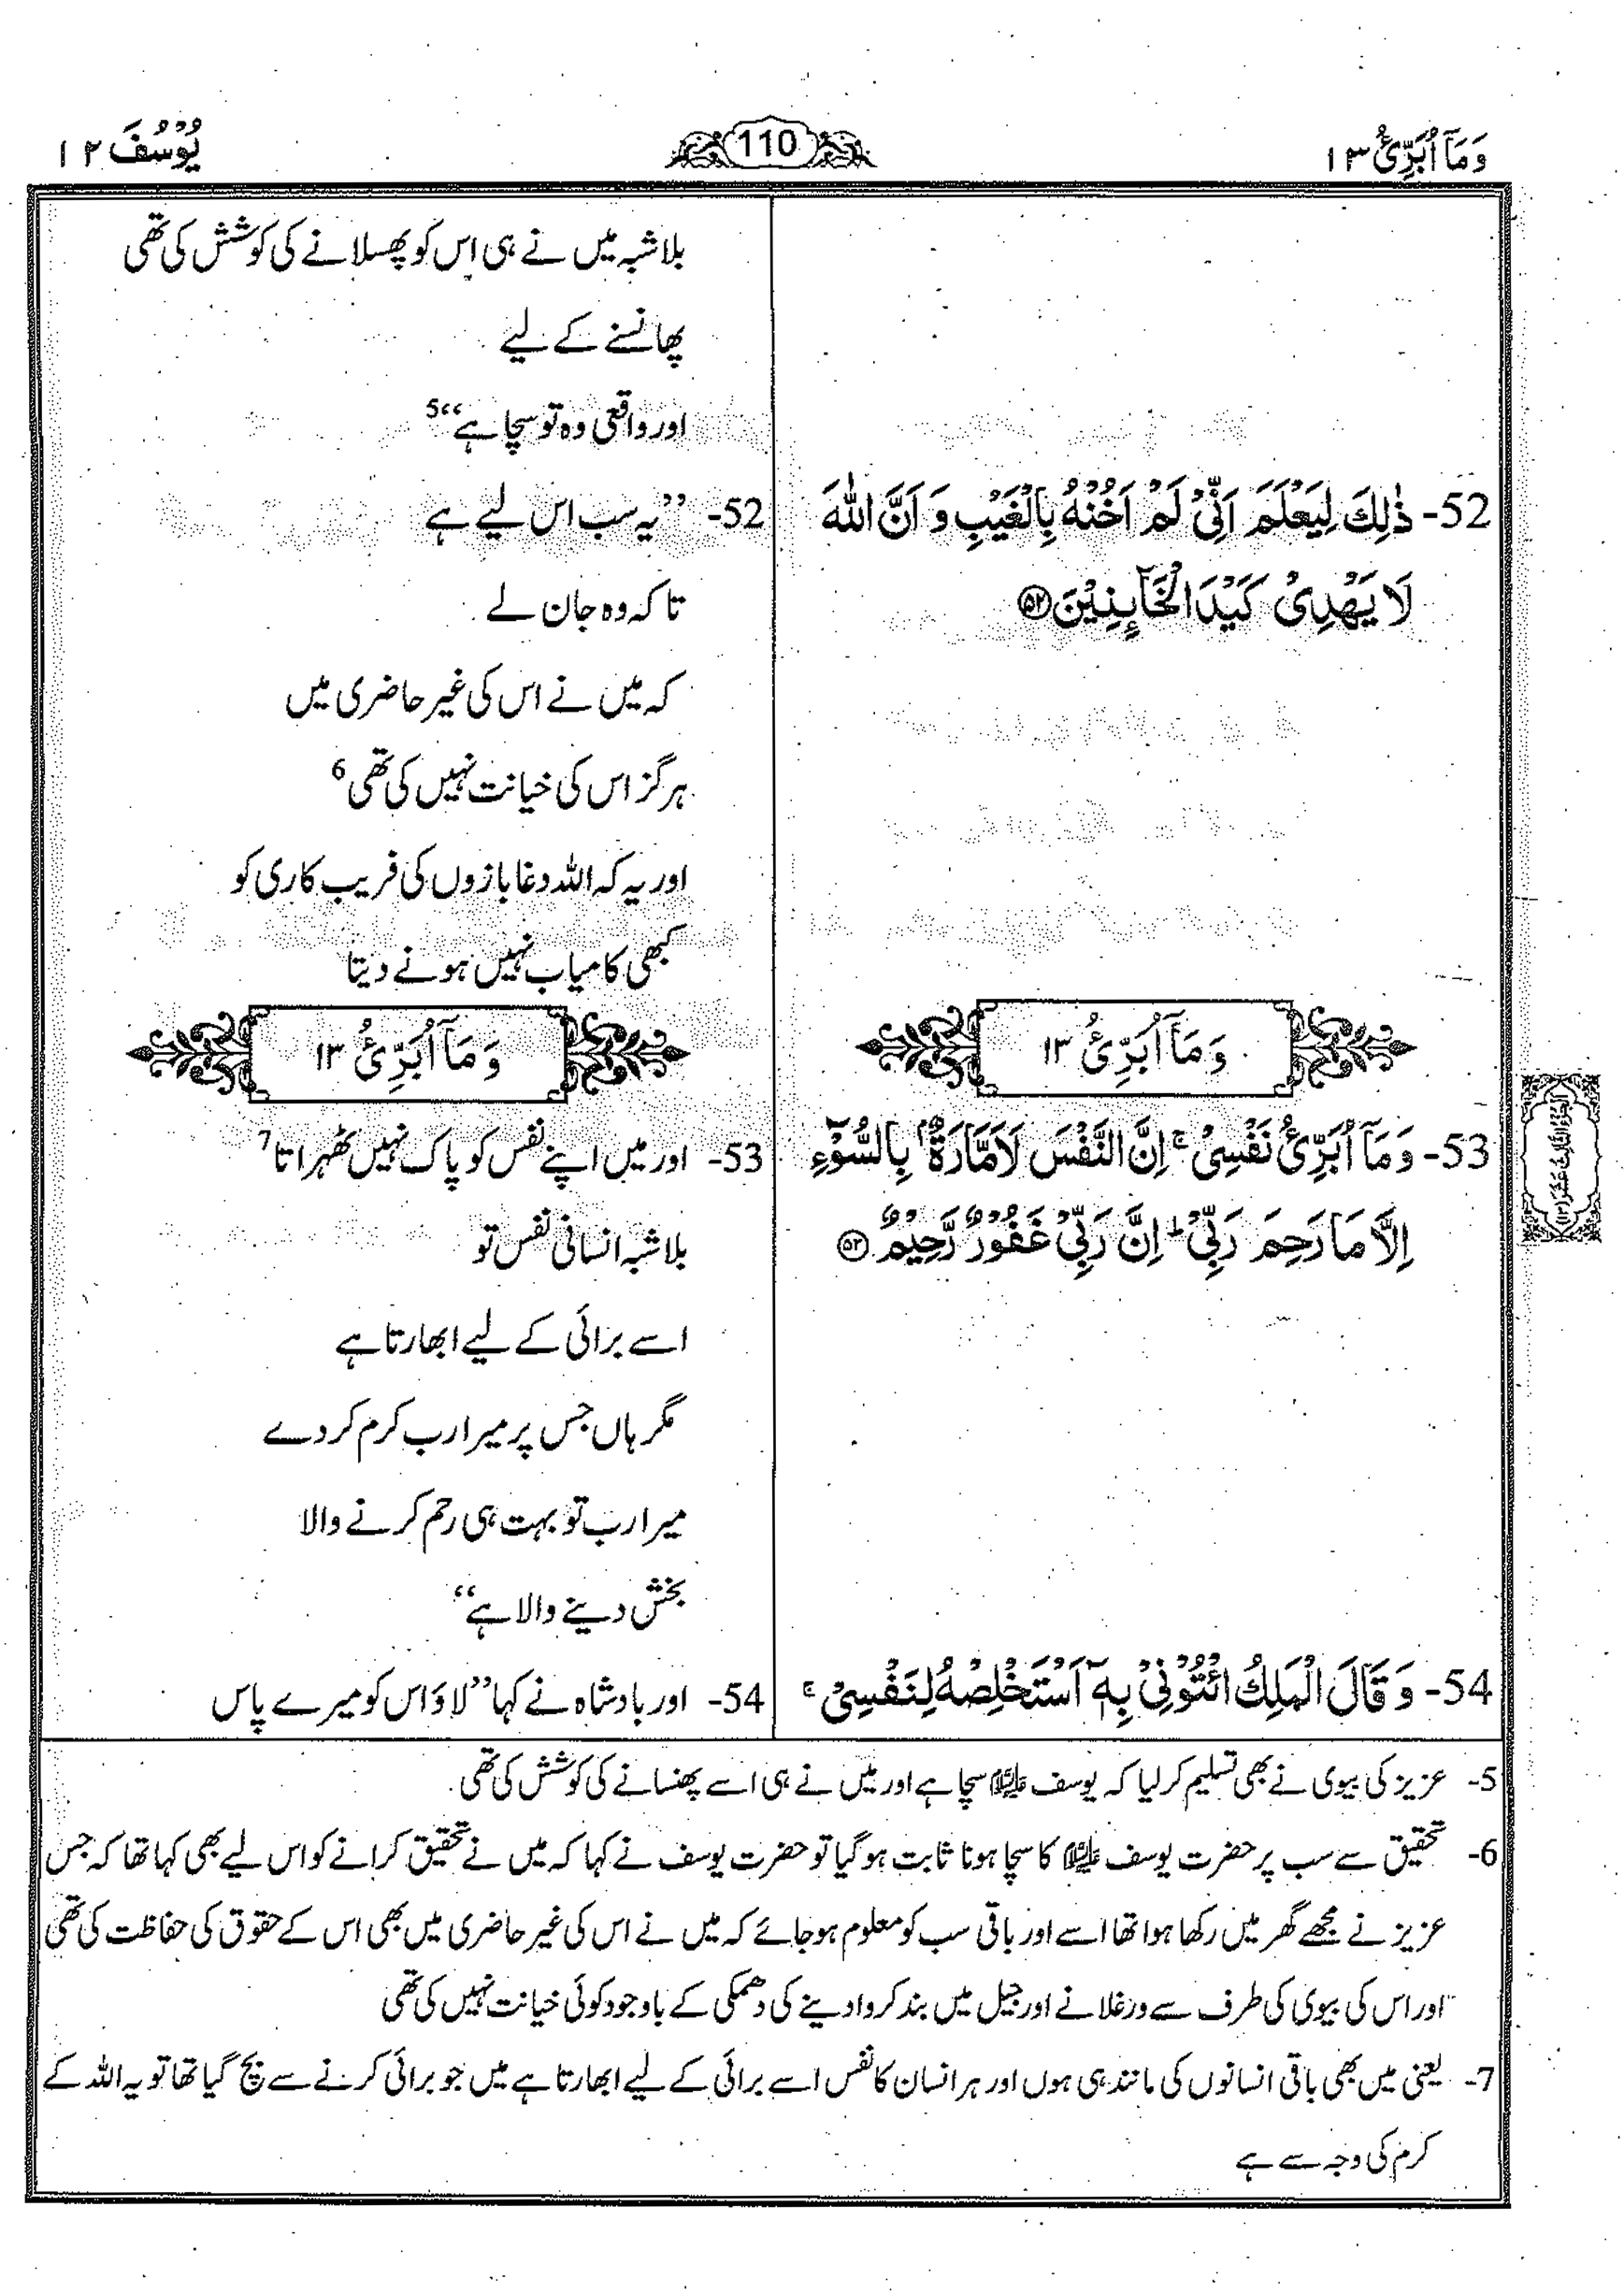 وَمَآ اُبَرِّئُ ۱۳
110
یُوْسُفَ ۱۲
بلاشبہ میں نے ہی اس کو پھسلانے کی کوشش کی تھی
پھانسنے کے لیے
اور واقعی وہ تو سچا ہے‘‘5
52- ذٰلِكَ لِیَعْلَمَ اَنِّیْ لَمْ اَخُنْهُ بِالْغَیْبِ وَ اَنَّ اللّٰهَ
لَا یَهْدِیْ كَیْدَ الْخَآىِٕنِیْنَ۝۵۲
52- ’’یہ سب اس لیے ہے
تاکہ وہ جان لے
کہ میں نے اس کی غیر حاضری میں
ہرگز اس کی خیانت نہیں کی تھی6
اور یہ کہ اللہ دغا بازوں کی فریب کاری کو
کبھی کامیاب نہیں ہونے دیتا
وَمَآ اُبَرِّئُ ۱۳
وَمَآ اُبَرِّئُ ۱۳
53- وَمَآ اُبَرِّئُ نَفْسِیْ ۚ اِنَّ النَّفْسَ لَاَمَّارَةٌۢ بِالسُّوْٓءِ
اِلَّا مَا رَحِمَ رَبِّیْ ؕ اِنَّ رَبِّیْ غَفُوْرٌ رَّحِیْمٌ۝۵۳
53- اور میں اپنے نفس کو پاک نہیں ٹھہراتا7
بلاشبہ انسانی نفس تو
اسے برائی کے لیے ابھارتا ہے
مگر ہاں جس پر میرا رب کرم کر دے
میرا رب تو بہت ہی رحم کرنے والا
بخش دینے والا ہے‘‘
54- وَ قَالَ الْمَلِكُ ائْتُوْنِیْ بِهٖۤ اَسْتَخْلِصْهُ لِنَفْسِیْ ۚ
54- اور بادشاہ نے کہا ’’لاؤ اس کو میرے پاس
الجزء الثالث عشر (۱۳)
5- عزیز کی بیوی نے بھی تسلیم کر لیا کہ یوسف علیہ السلام سچا ہے اور میں نے ہی اسے پھنسانے کی کوشش کی تھی
6- تحقیق سے سب پر حضرت یوسف علیہ السلام کا سچا ہونا ثابت ہو گیا تو حضرت یوسف نے کہا کہ میں نے تحقیق کرانے کو اس لیے بھی کہا تھا کہ جس
عزیز نے مجھے گھر میں رکھا ہوا تھا اسے اور باقی سب کو معلوم ہو جائے کہ میں نے اس کی غیر حاضری میں بھی اس کے حقوق کی حفاظت کی تھی
اور اس کی بیوی کی طرف سے ورغلانے اور جیل میں بند کروا دینے کی دھمکی کے باوجود کوئی خیانت نہیں کی تھی
7- یعنی میں بھی باقی انسانوں کی مانند ہی ہوں اور ہر انسان کا نفس اسے برائی کے لیے ابھارتا ہے میں جو برائی کرنے سے بچ گیا تھا تو یہ اللہ کے
کرم کی وجہ سے ہے